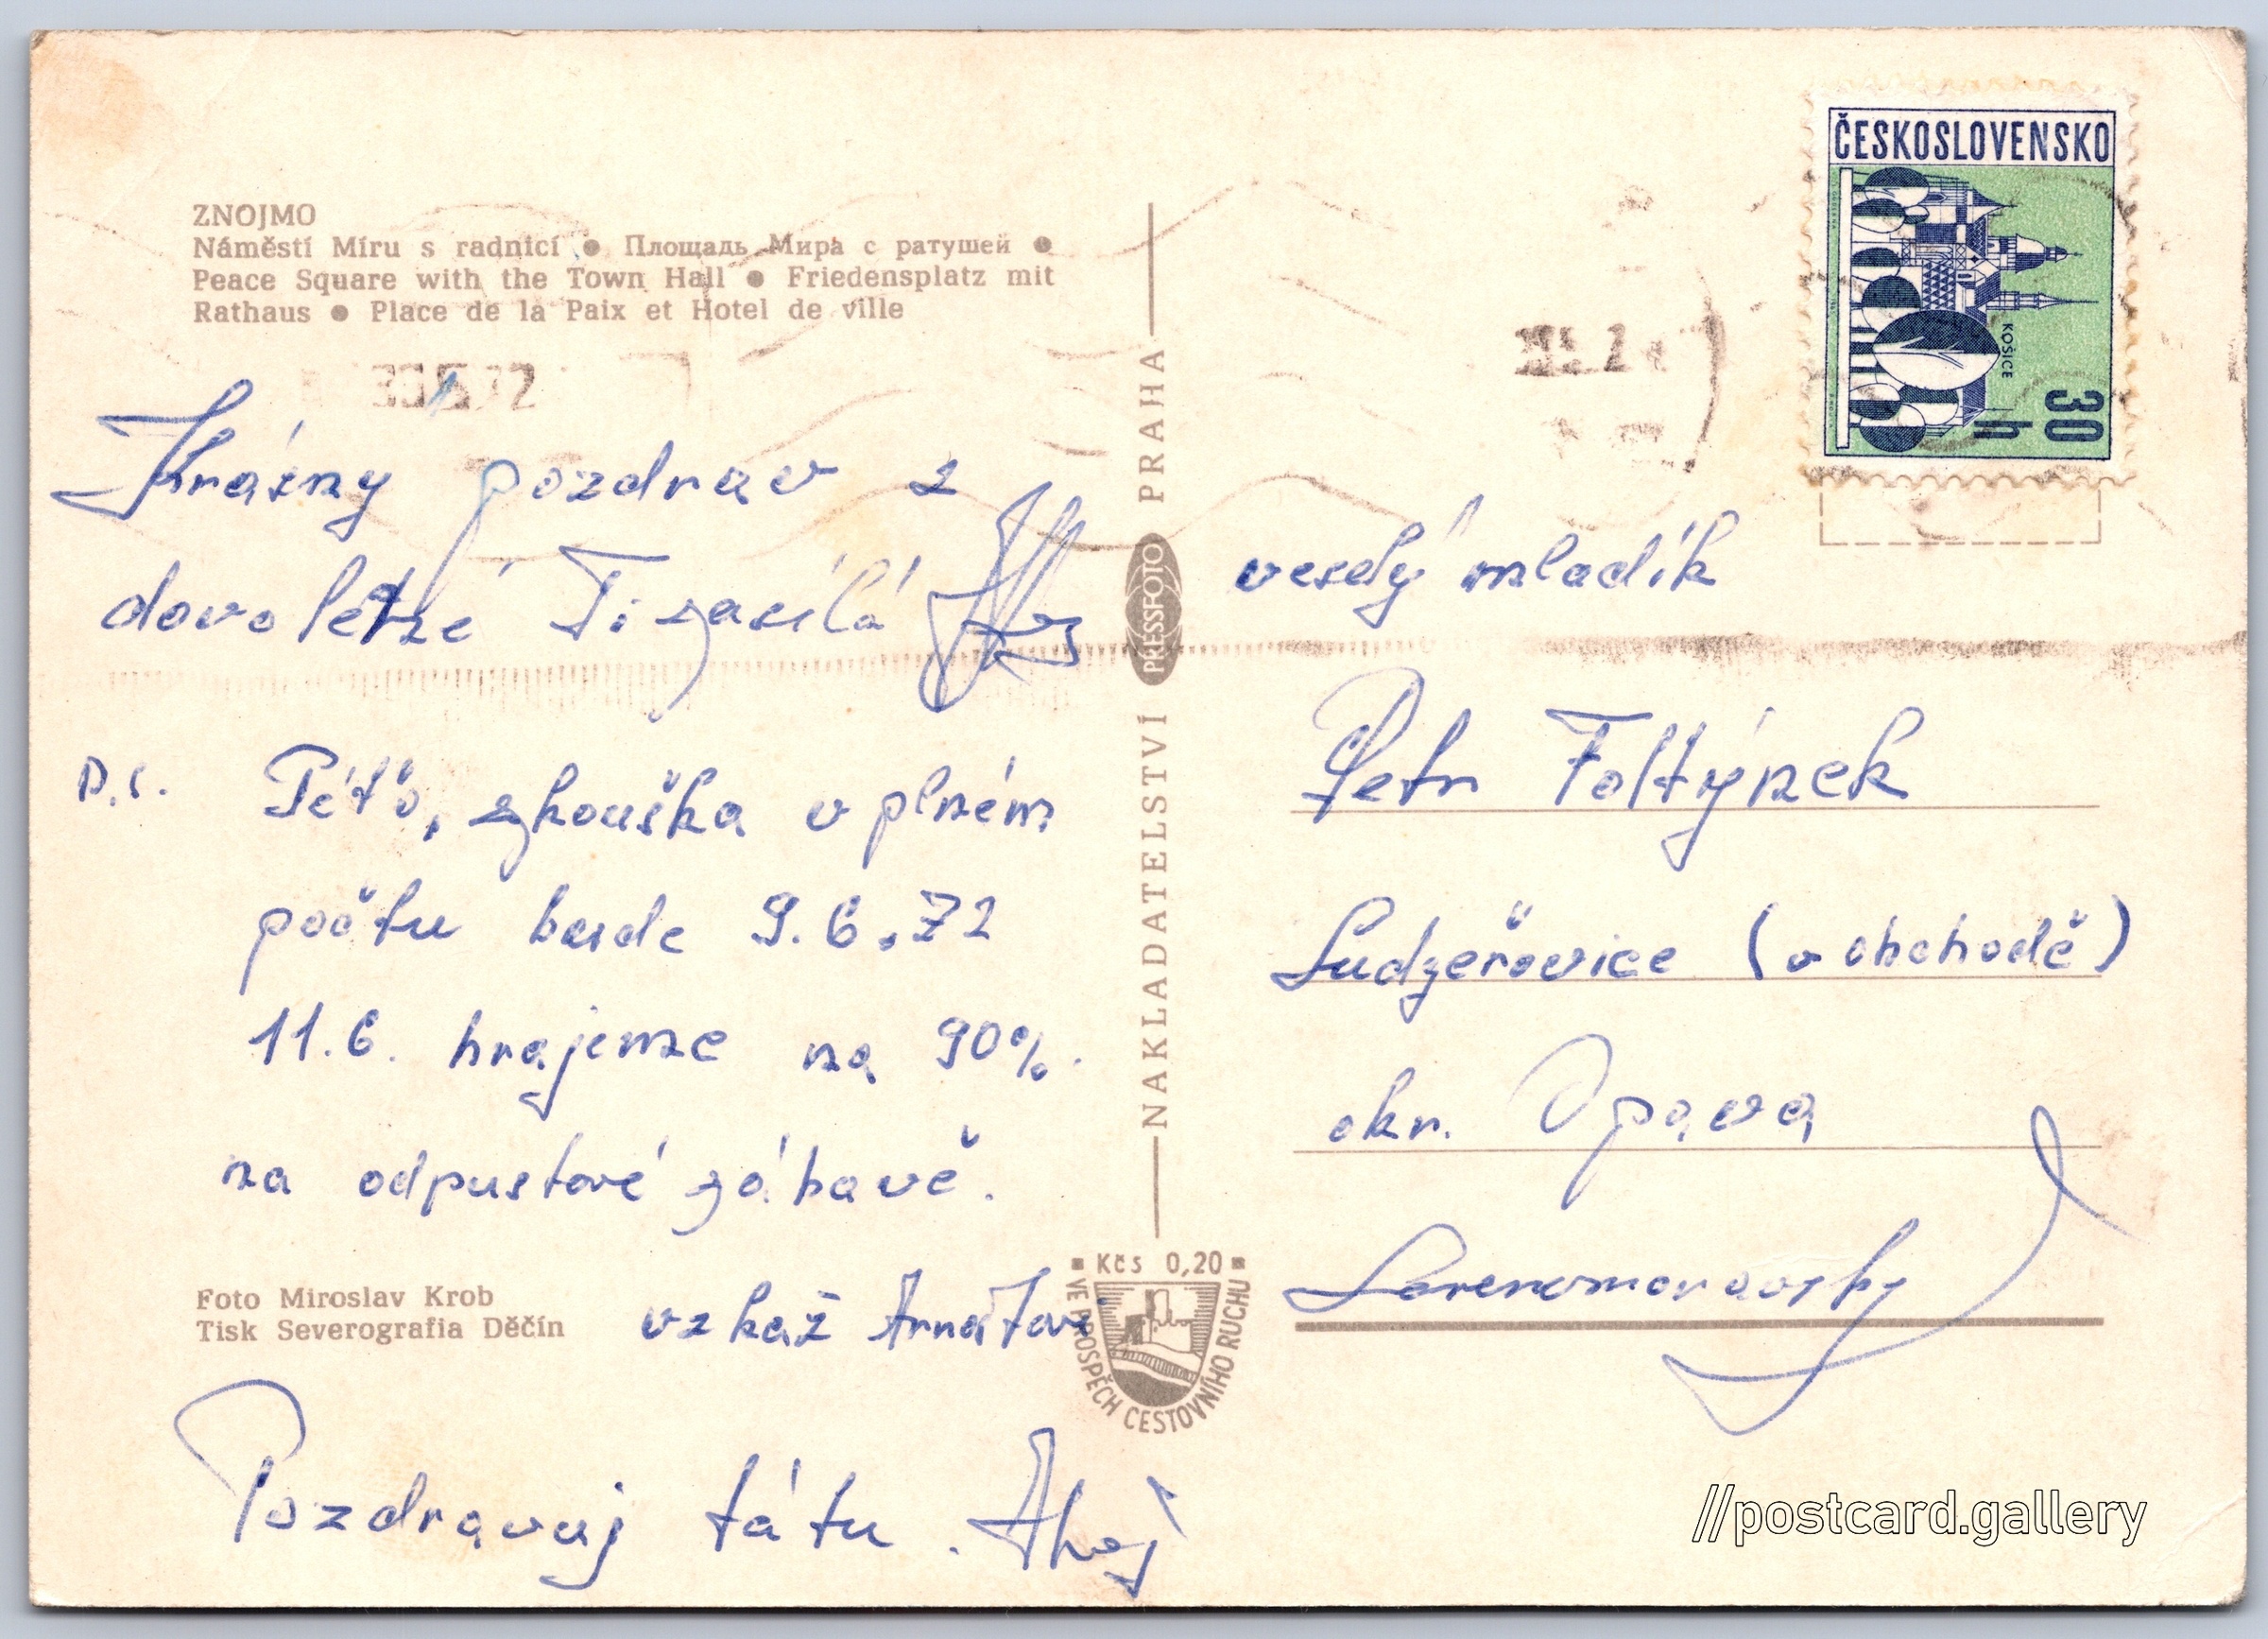 ZNOJMO
Náměstí Míru s radnicí ● Площадь Мира с ратушей ●
Peace Square with the Town Hall ● Friedensplatz mit
Rathaus ● Place de la Paix et Hotel de ville
Krásny pozdrav z
dovolené Ti zasílá
P.S. Péťo, zkouška v plném
počtu bude 9.6.72
11.6. hrajeme na 90%.
na odpustové zábavě.
vzkaž Arnoštovi
Pozdravuj tátu. Ahoj
Foto Miroslav Krob
Tisk Severografia Děčín
NAKLADATELSTVÍ PRESSFOTO PRAHA
Kčs 0,20
VE PROSPĚCH CESTOVNÍHO RUCHU
ČESKOSLOVENSKO
KOŠICE
30 h
veselý mladík
Petr Foltýnek
Ludgeřovice (v obchodě)
okr. Opava
Severomoravsky
//postcard.gallery